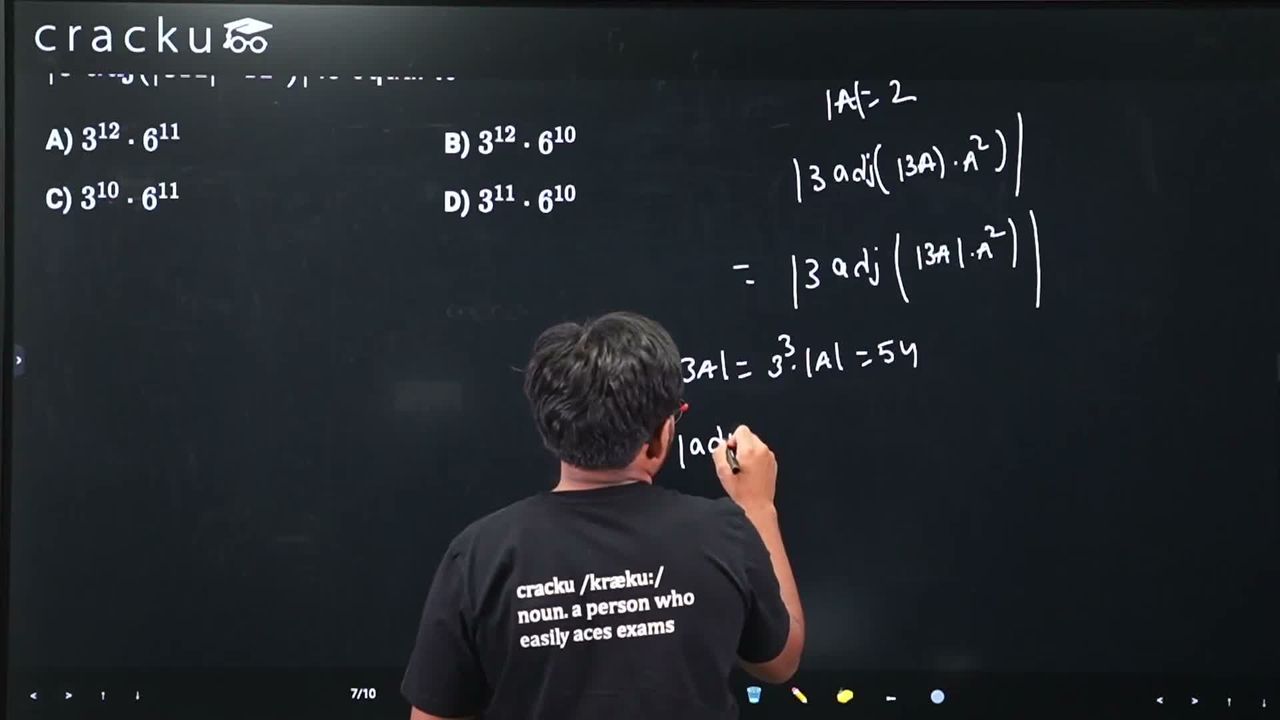 cracku
A) 3¹² · 6¹¹
B) 3¹² · 6¹⁰
C) 3¹⁰ · 6¹¹
D) 3¹¹ · 6¹⁰
|A| = 2
|3 adj(|3A) · A²)|
= |3 adj(|3A| · A²)|
3A| = 3³ · |A| = 54
|ad
cracku /kræku:/
noun. a person who
easily aces exams
7/10